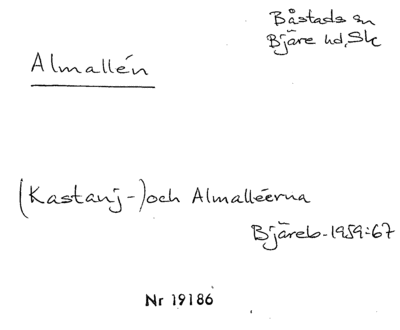 Båstads sn
Bjäre hd, Sk
Almallén
(Kastanj-) och Almalléerna
Bjäreb. 1959:67
Nr 19186